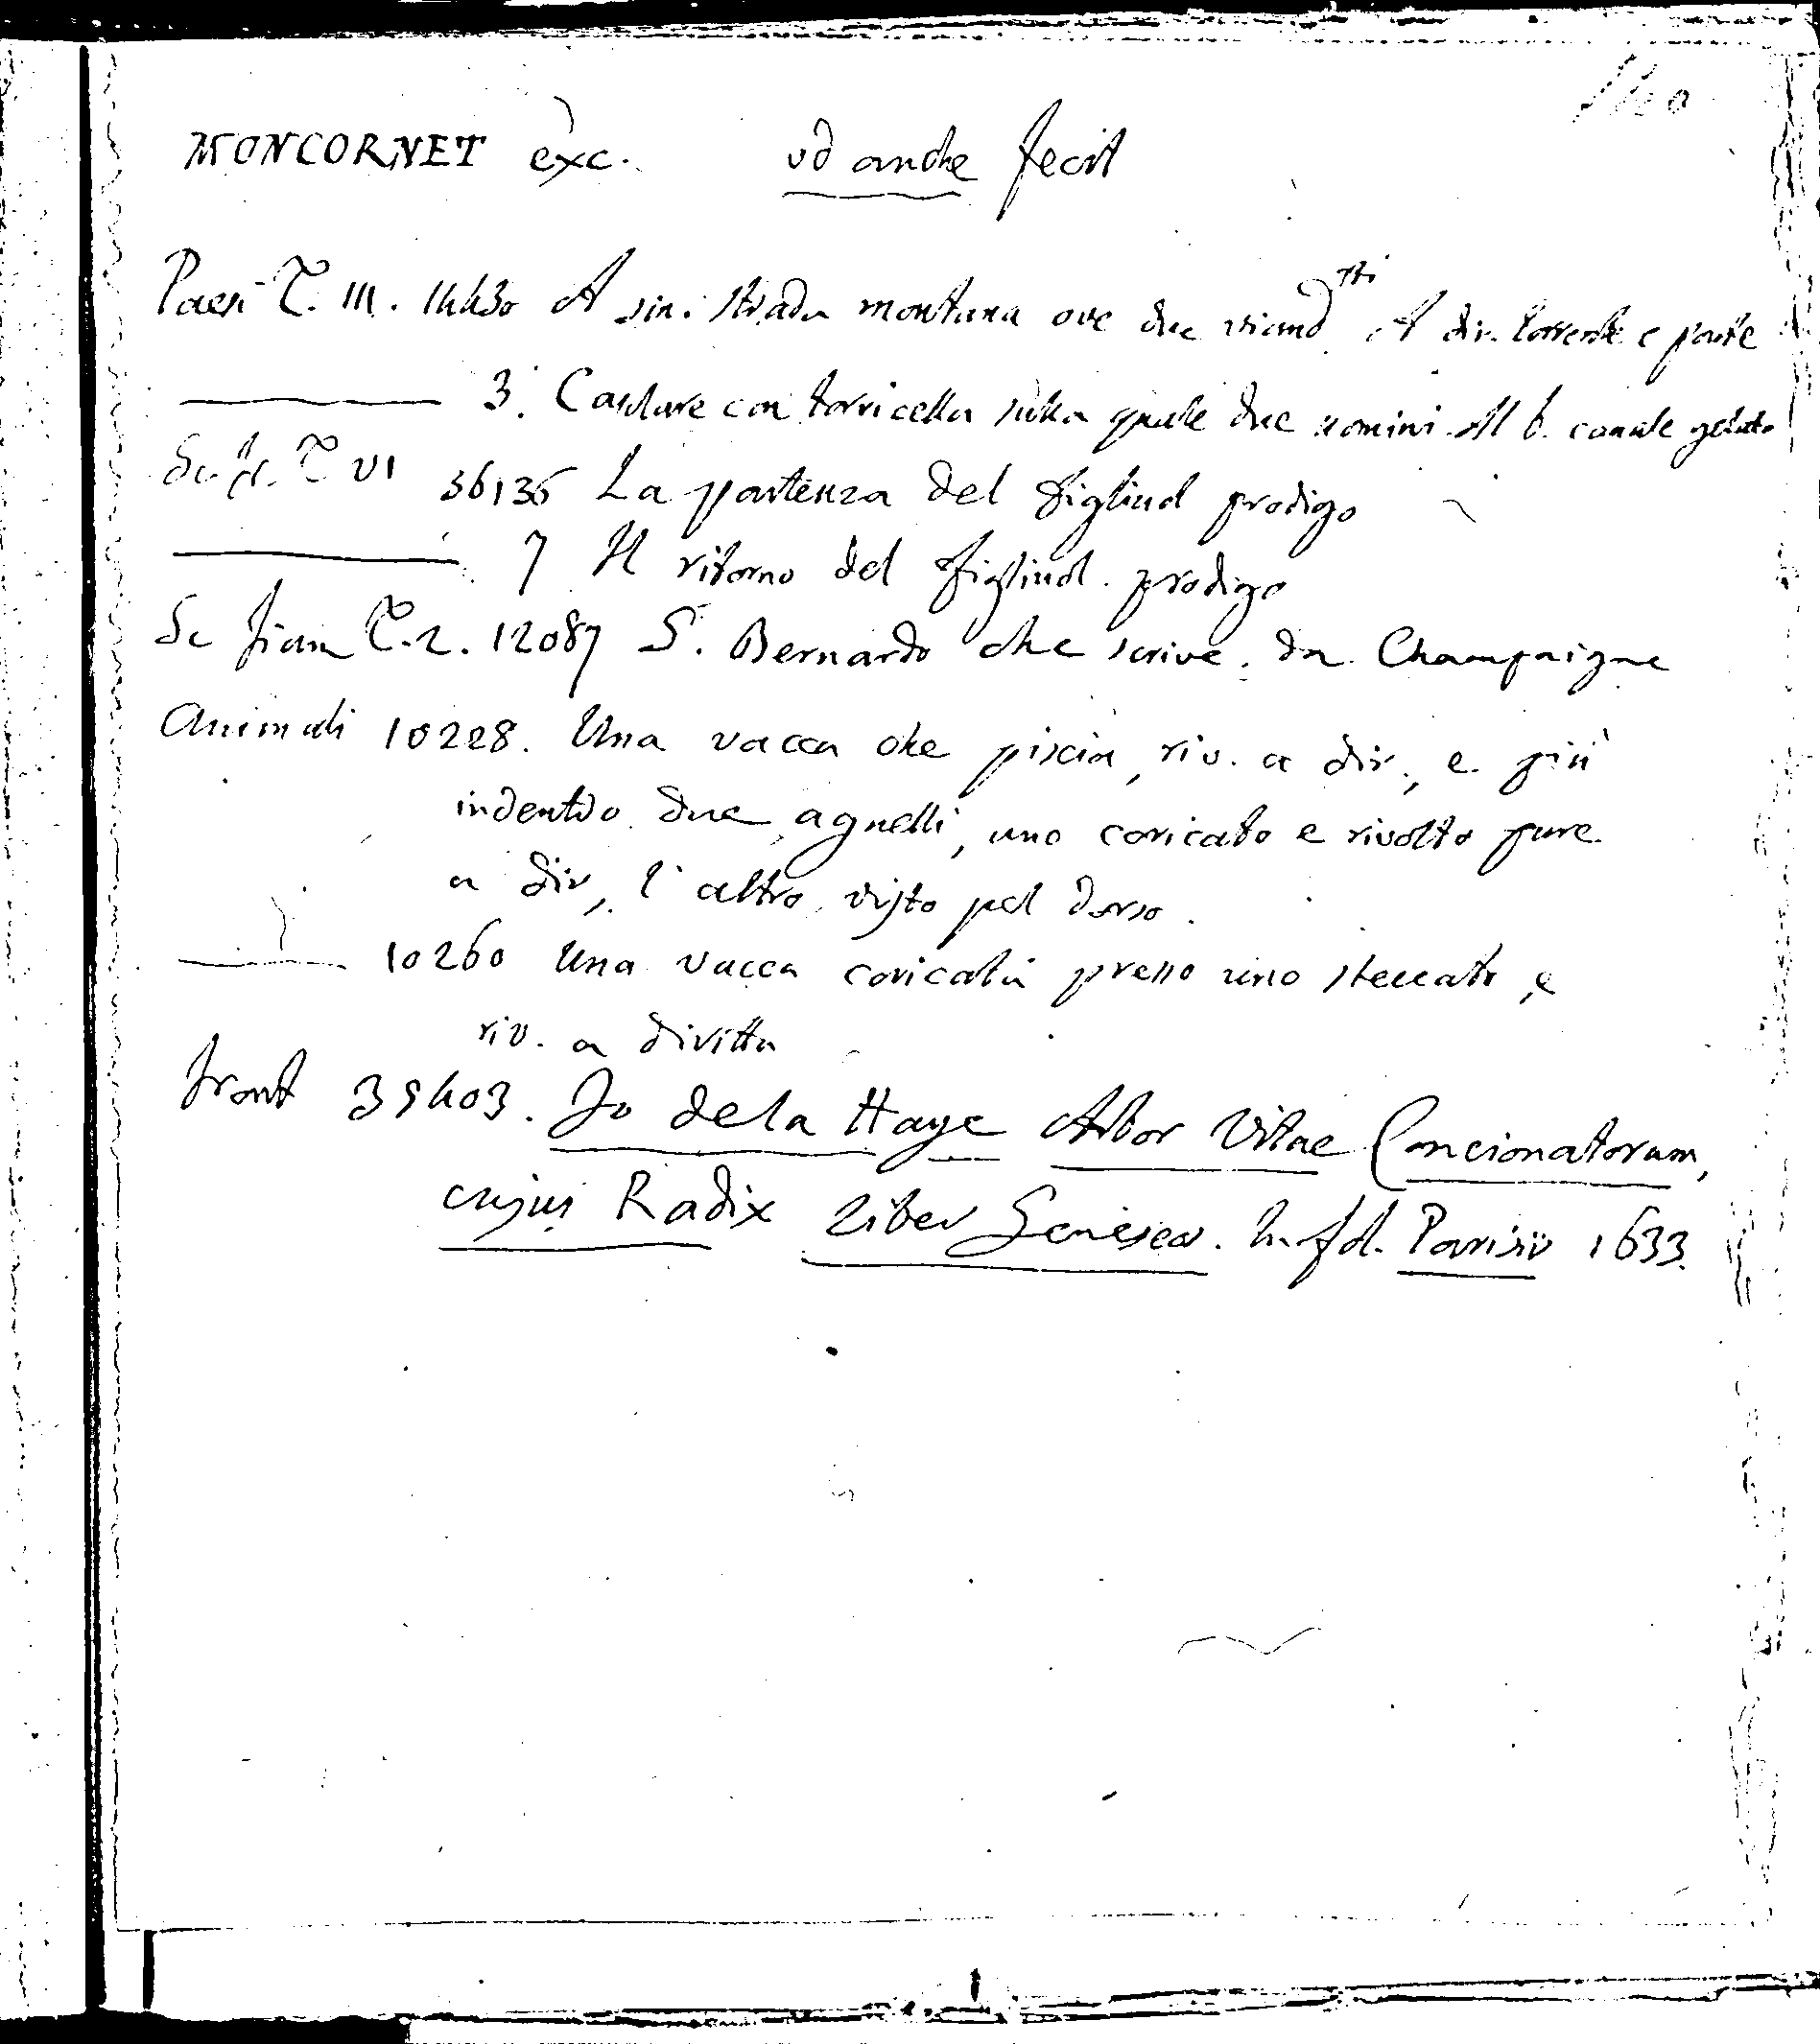 MONCORNET exc. vd anche fecit
Paesi T. III. 14430 A sin. strada montana ove due viand.tti A dir. torrente e ponte
3. Casolare con torricella sulla quale due uomini. Al b. canale gelato
Sc. fr. T VI 36136 La partenza del figliuol prodigo
7 Il ritorno del figliuol. prodigo
Sc fiam T. 2. 12087 S. Bernardo che scrive. da Champaigne
Animali 10228. Una vacca che piscia, riv. a dir., e più
indentro due agnelli, uno coricato e rivolto pure
a dir., l'altro visto pel dorso.
10260 Una vacca coricata presso uno steccato, e
riv. a diritta
front 39403. Jo de la Haye Arbor Vitae Concionatorum,
cujus Radix Liber Geneseos. In fol. Parisiis 1633.